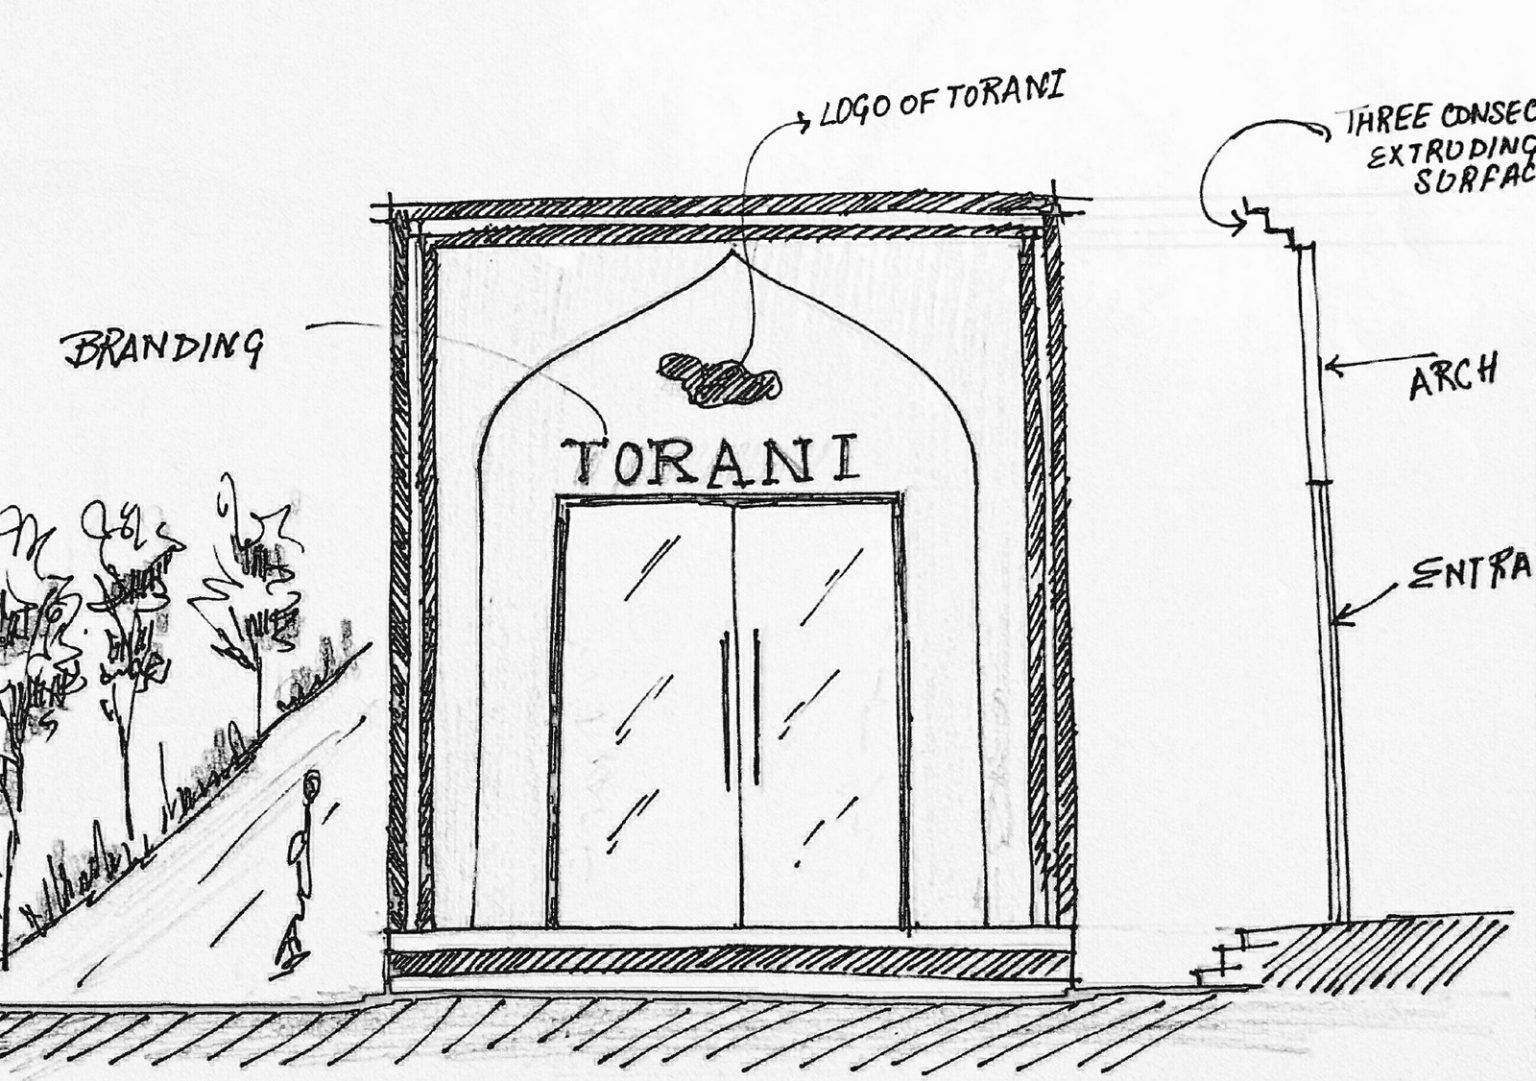 LOGO OF TORANI
THREE CONSEC
EXTRUDING
SURFAC
BRANDING
ARCH
TORANI
ENTRA